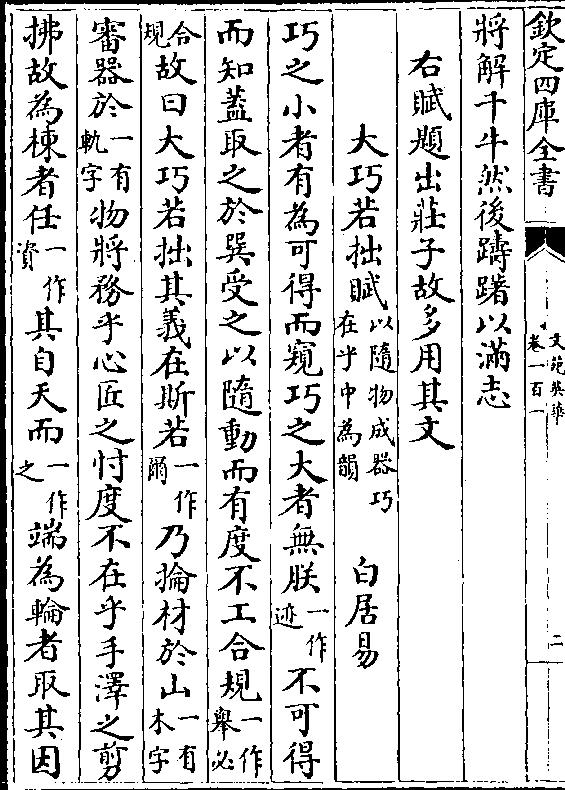 欽定四庫全書
文苑英華
卷一百一
二
將解千牛然後躊躇以滿志
右賦題出莊子故多用其文
大巧若拙賦以隨物成器巧在乎中為韻 白居易
巧之小者有為可得而窺巧之大者無朕一作迹不可得
而知蓋取之於巽受之以隨動而有度不工合規一作舉必
合規故曰大巧若拙其義在斯若一作爾乃掄材於山一有木字
審器於一有軌字物將務乎心匠之忖度不在乎手澤之剪
拂故為棟者任一作資其自天而一作之端為輪者取其因